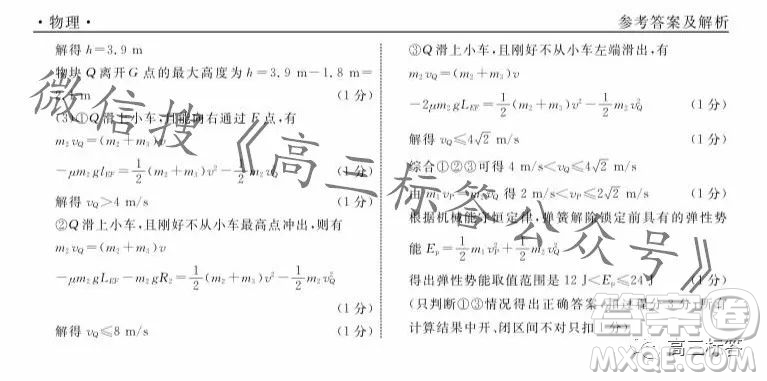 ·物理·
参考答案及解析
解得 h=3.9 m
物块 Q 离开 G 点的最大高度为 h=3.9 m-1.8 m=
m (1 分)
(3)①Q 滑上小车,且能向右通过 E 点,有
m₂v_Q=(m₂+m₃)v
-μm₂gl_EF=1/2(m₂+m₃)v²-1/2m₂v_Q² (1 分)
解得 v_Q>4 m/s (1 分)
②Q 滑上小车,且刚好不从小车最高点冲出,则有
m₂v_Q=(m₂+m₃)v
-μm₂gL_EF-m₂gR₂=1/2(m₂+m₃)v²-1/2m₂v_Q²
(1 分)
解得 v_Q≤8 m/s (1 分)
③Q 滑上小车,且刚好不从小车左端滑出,有
m₂v_Q=(m₂+m₃)v
-2μm₂gL_EF=1/2(m₂+m₃)v²-1/2m₂v_Q² (1 分)
解得 v_Q≤4√2 m/s (1 分)
综合①②③可得 4 m/s<v_Q≤4√2 m/s
由 m₁v_P=m₂v_Q 得 2 m/s<v_P≤2√2 m/s (1 分)
根据机械能守恒定律,弹簧解除锁定前具有的弹性势
能 E_p=1/2m₁v_P²+1/2m₂v_Q²
得出弹性势能取值范围是 12 J<E_p≤24 J (1 分)
(只判断①③情况得出正确答案,扣过程分 3 分;所有
计算结果中开、闭区间不对只扣 1 分)
微信搜《高三标答公众号》
答案圈
MXQE.COM
高三标答